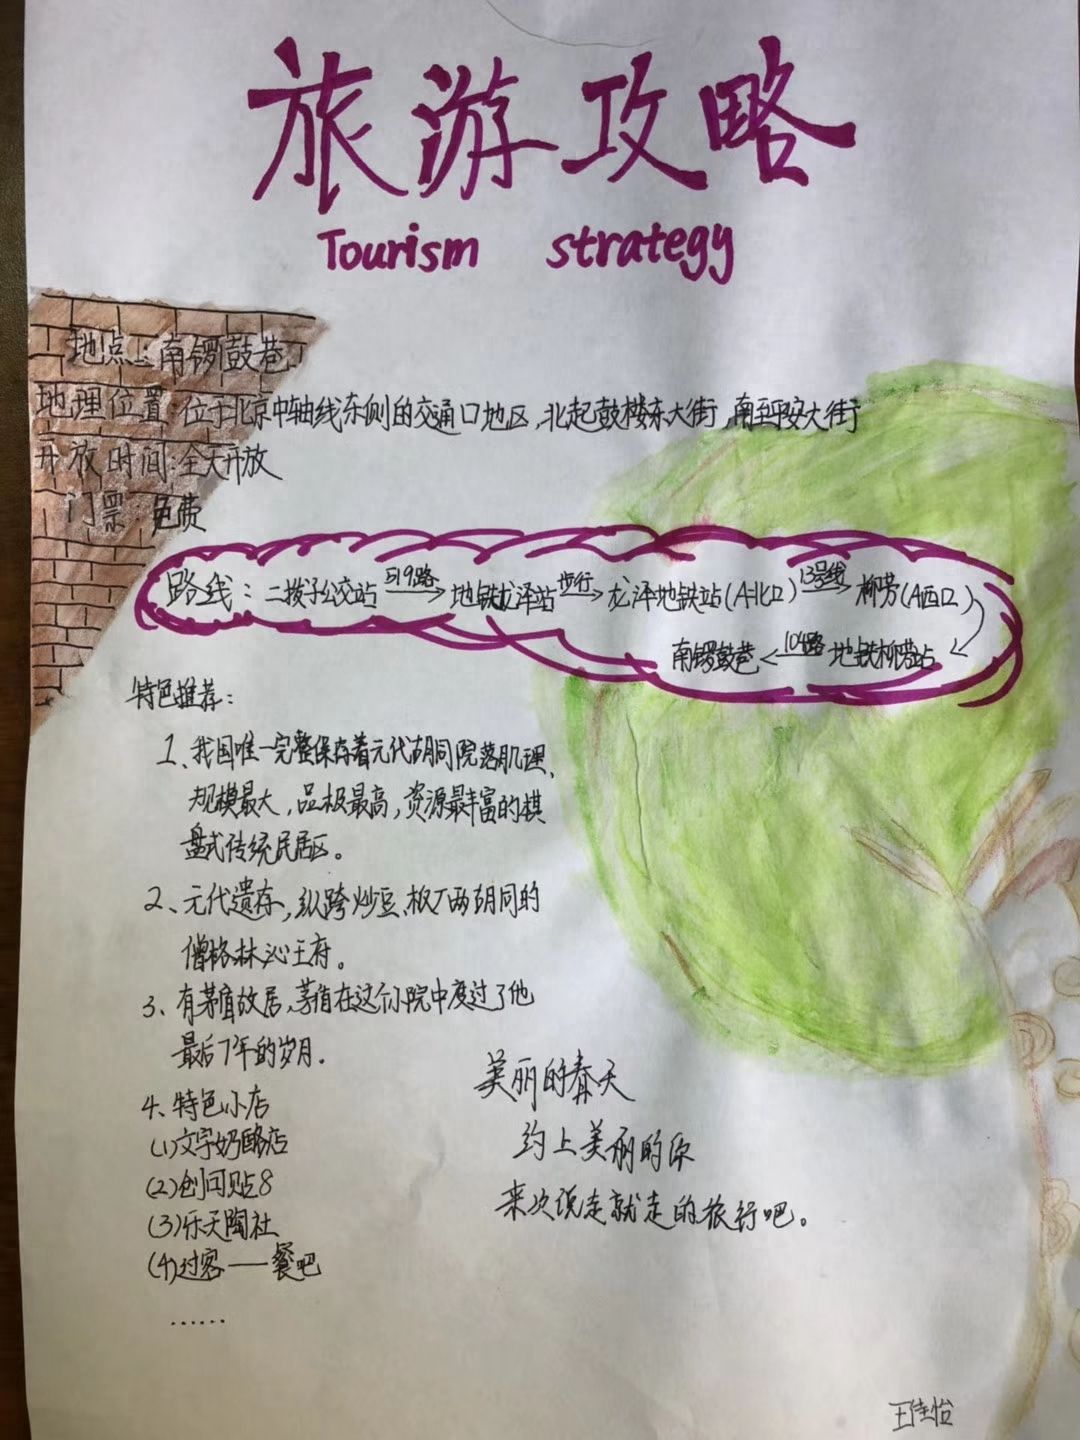 旅游攻略
Tourism strategy
地点：南锣鼓巷
地理位置：位于北京中轴线东侧的交通口地区，北起鼓楼东大街，南至平安大街
开放时间：全天开放
门票：免费
路线：二拨子公交站 519路 地铁龙泽站 步行 龙泽地铁站(A北口) 13号线 柳芳(A西口)
南锣鼓巷 104路 地铁柳芳站
特色推荐：
1、我国唯一完整保存着元代胡同院落肌理、
规模最大，品极最高，资源最丰富的棋
盘式传统民居区。
2、元代遗存，纵跨炒豆、板厂两胡同的
僧格林沁王府。
3、有茅盾故居，茅盾在这个小院中度过了他
最后7年的岁月.
4、特色小店
(1)文宇奶酪店
(2)创可贴8
(3)乐天陶社
(4)过客——餐吧
......
美丽的春天
约上美丽的你
来次说走就走的旅行吧。
王佳怡